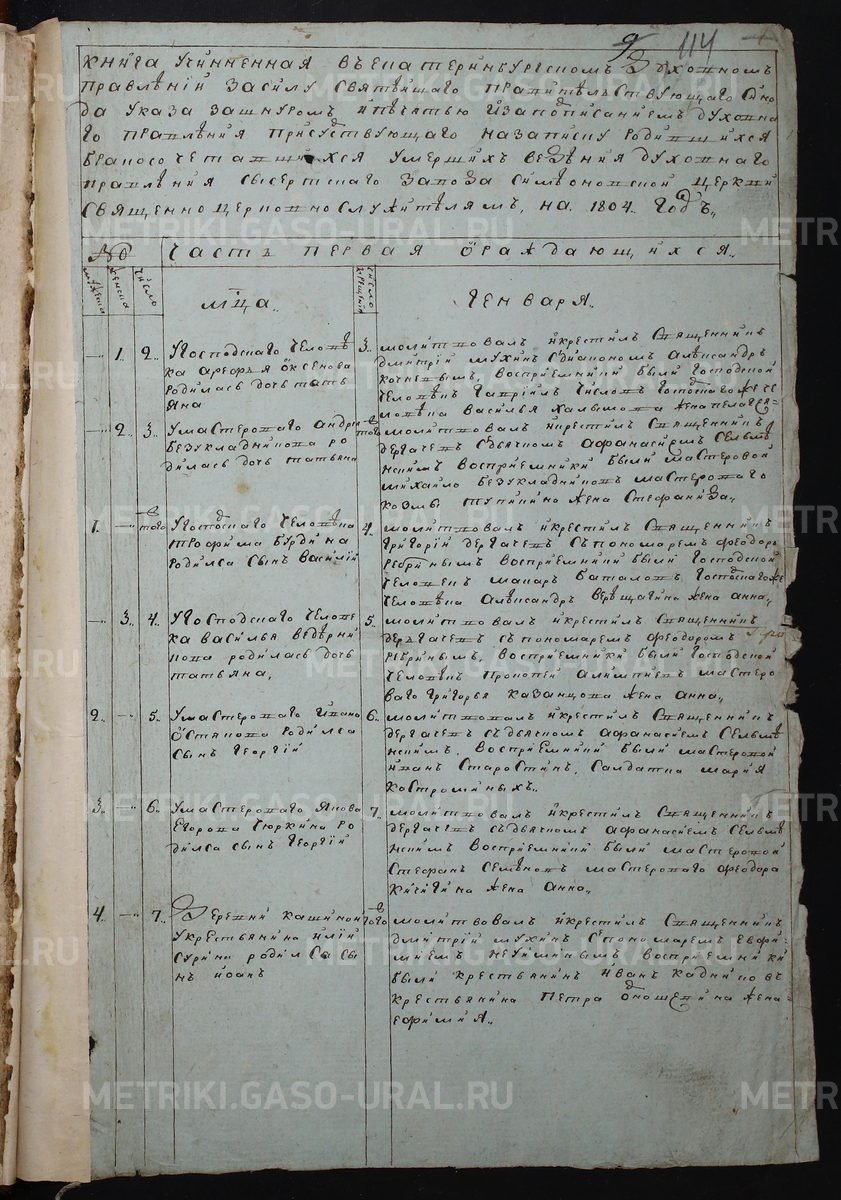 9 114
книга учиненная въекатеринъбургскомъ духовномъ
правлѣнiи засилу святѣйшаго правителъствующаго Сѵно
да указа зашнуромъ ипечатью изаподписаниемъ духовна
го правлѣния присудствующаго назаписку родившихся
бракосочетавшихся умершихъ ведѣния духовнаго
правлѣния сысертскаго завода симѣоновской церкви
священно церковно служителямъ, на 1804 годъ,,
№ Часть первая ораждающихся..
мужеска женска число мца,, число крещенiй генваря..
1. 2.. Угосподскаго человѣ
ка арефья оксенова
родилась дочь тать
яна
3.. молитвовалъ икрестилъ Священникъ
дмитрiй мухинъ Сдиакономъ алѣксандръ
кочневымъ, восприемники были господской
человѣкъ гаврiилъ господскаго же че
ловѣка василья халымова жена пелагея
2. 3. Умастероваго андрѣя
безукладникова ро
дилась дочь татьяна
того молитвовалъ икрестилъ священникъ
дергачевъ Сдьячкомъ афанасиемъ Сельмѣ
нскимъ восприемники были мастеровой
михайло безукладниковъ мастероваго
козмы тупикино жена стефанида,,
1. того Угосподскаго человѣка
трофима бурдина
родился сынъ василiй
4.. молитвовалъ икрестилъ священникъ
григорiй дергачевъ Съпономаремъ феодоръ
ребринымъ восприемники были господской
человекъ макаръ баталовъ, господскаго же
человѣка алѣксандръ верѣщагина жена анна,,
3. 4. Угосподскаго челове
ка василья ведѣрни
кова родилась дочь
татьяна,
5. молитвовалъ икрестилъ священникъ
дергачевъ съпономаремъ феодоромъ
ребринымъ, восприемники были господской
человѣкъ прокопей алимпиевъ мастеро
ваго григорья казанцова жена анна,,
2. 5. Умастероваго ивана
останова родился
сынъ георгiй
6.. молитвовалъ икрестилъ священникъ
дергачевъ съдьячкомъ афанасиемъ Сельмѣ
нскимъ. восприемники были мастеровой
иванъ старостинъ, солдатка мария
костроминыхъ..
3. 6. Умастероваго якова
егорова тюркина ро
дился сынъ георгiй
7. молитвовалъ икрестилъ священникъ
дергачевъ съдьячкомъ афанасиемъ Сельмѣ
нскимъ восприемники были мастеровой
стефанъ семѣновъ мастероваго феодора
кичигина жена анна,,
4. 7.. Деревни кашиной
укрестьянина илiи
сурина родился сы
нъ иоанъ
того молитвовалъ икрестилъ священникъ
дмитрiй мухинъ Спономаремъ евфи
миемъ неуйминымъ восприемники
были крестьянинъ иванъ кадниковъ
крестьянина петра жена
ефимия..
METRIKI.GASO-URAL.RU